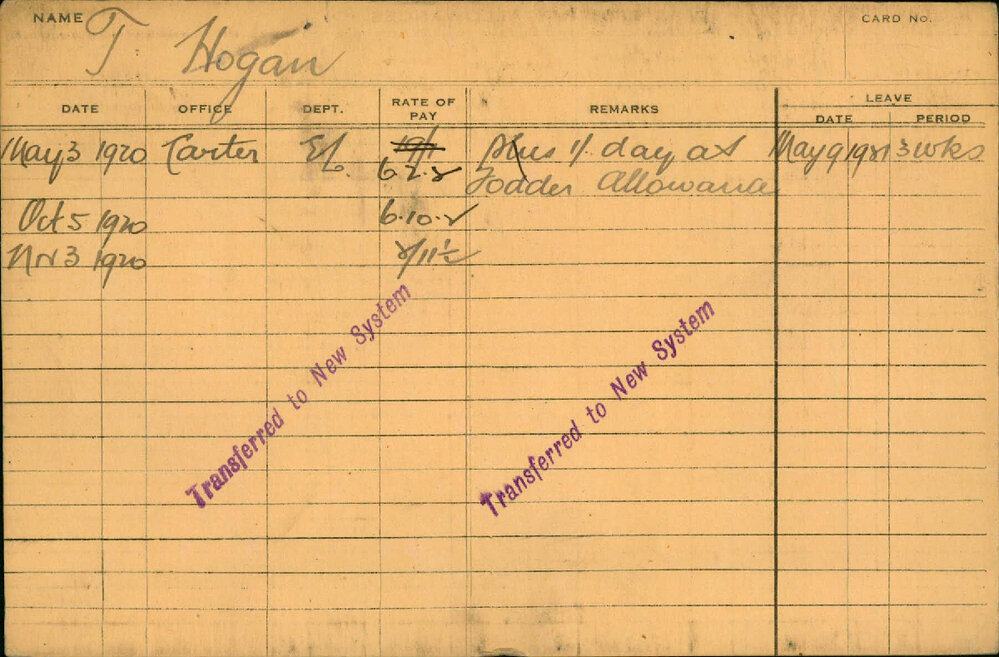 NAME T Hogan CARD No.
DATE OFFICE DEPT. RATE OF PAY REMARKS LEAVE
DATE PERIOD
May 3 1920 Carter EL. plus 1/. day as May 9 1921 3 wks
6.2.2 Fodder Allowance
Oct 5 1920 6.10.2
Nov 3 1920 2/11½
Transferred to New System
Transferred to New System